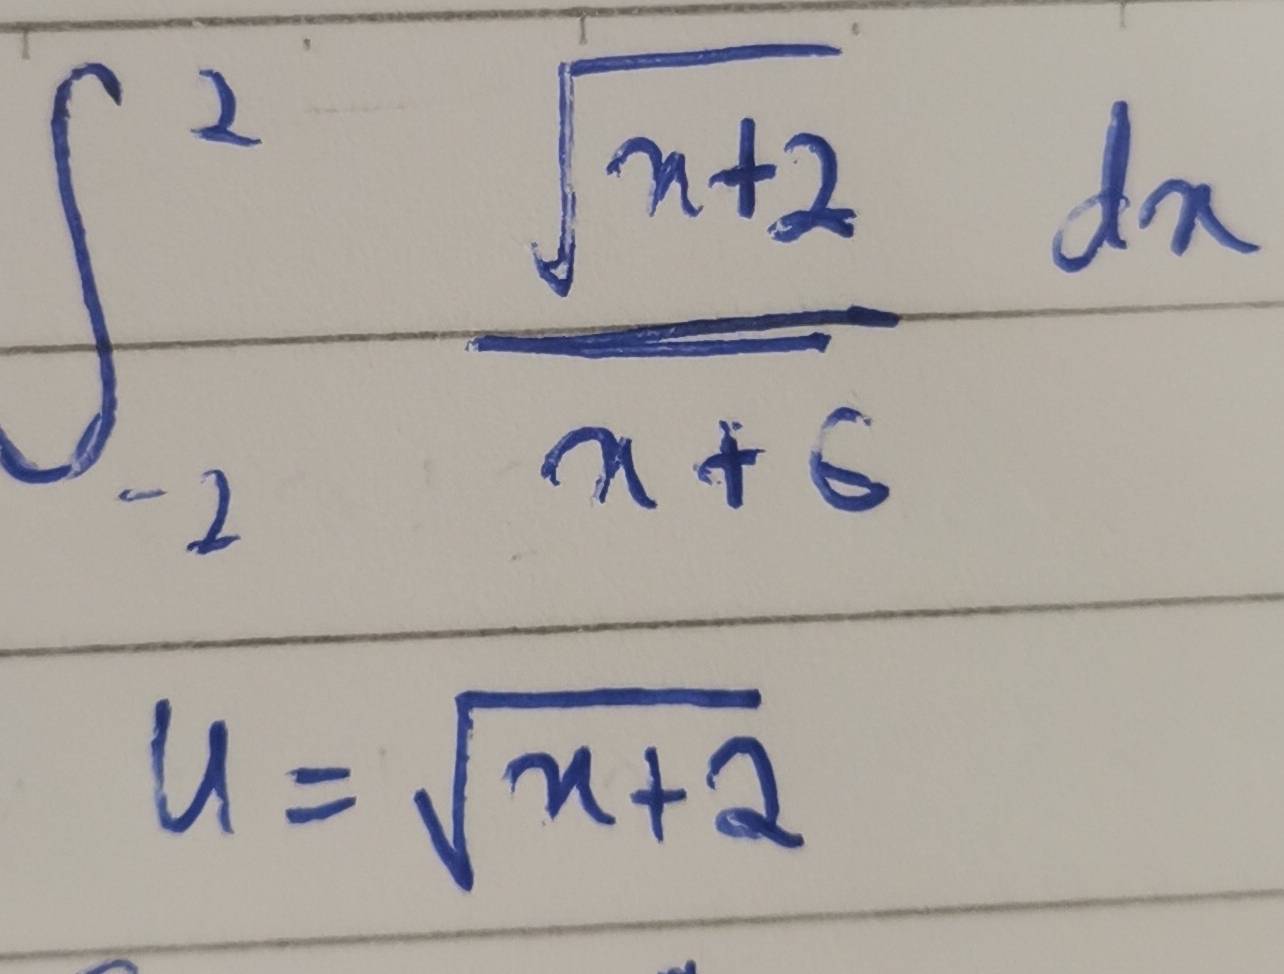 ∫_{-2}^{2} \frac{\sqrt{x+2}}{x+6} dx
u = \sqrt{x+2}